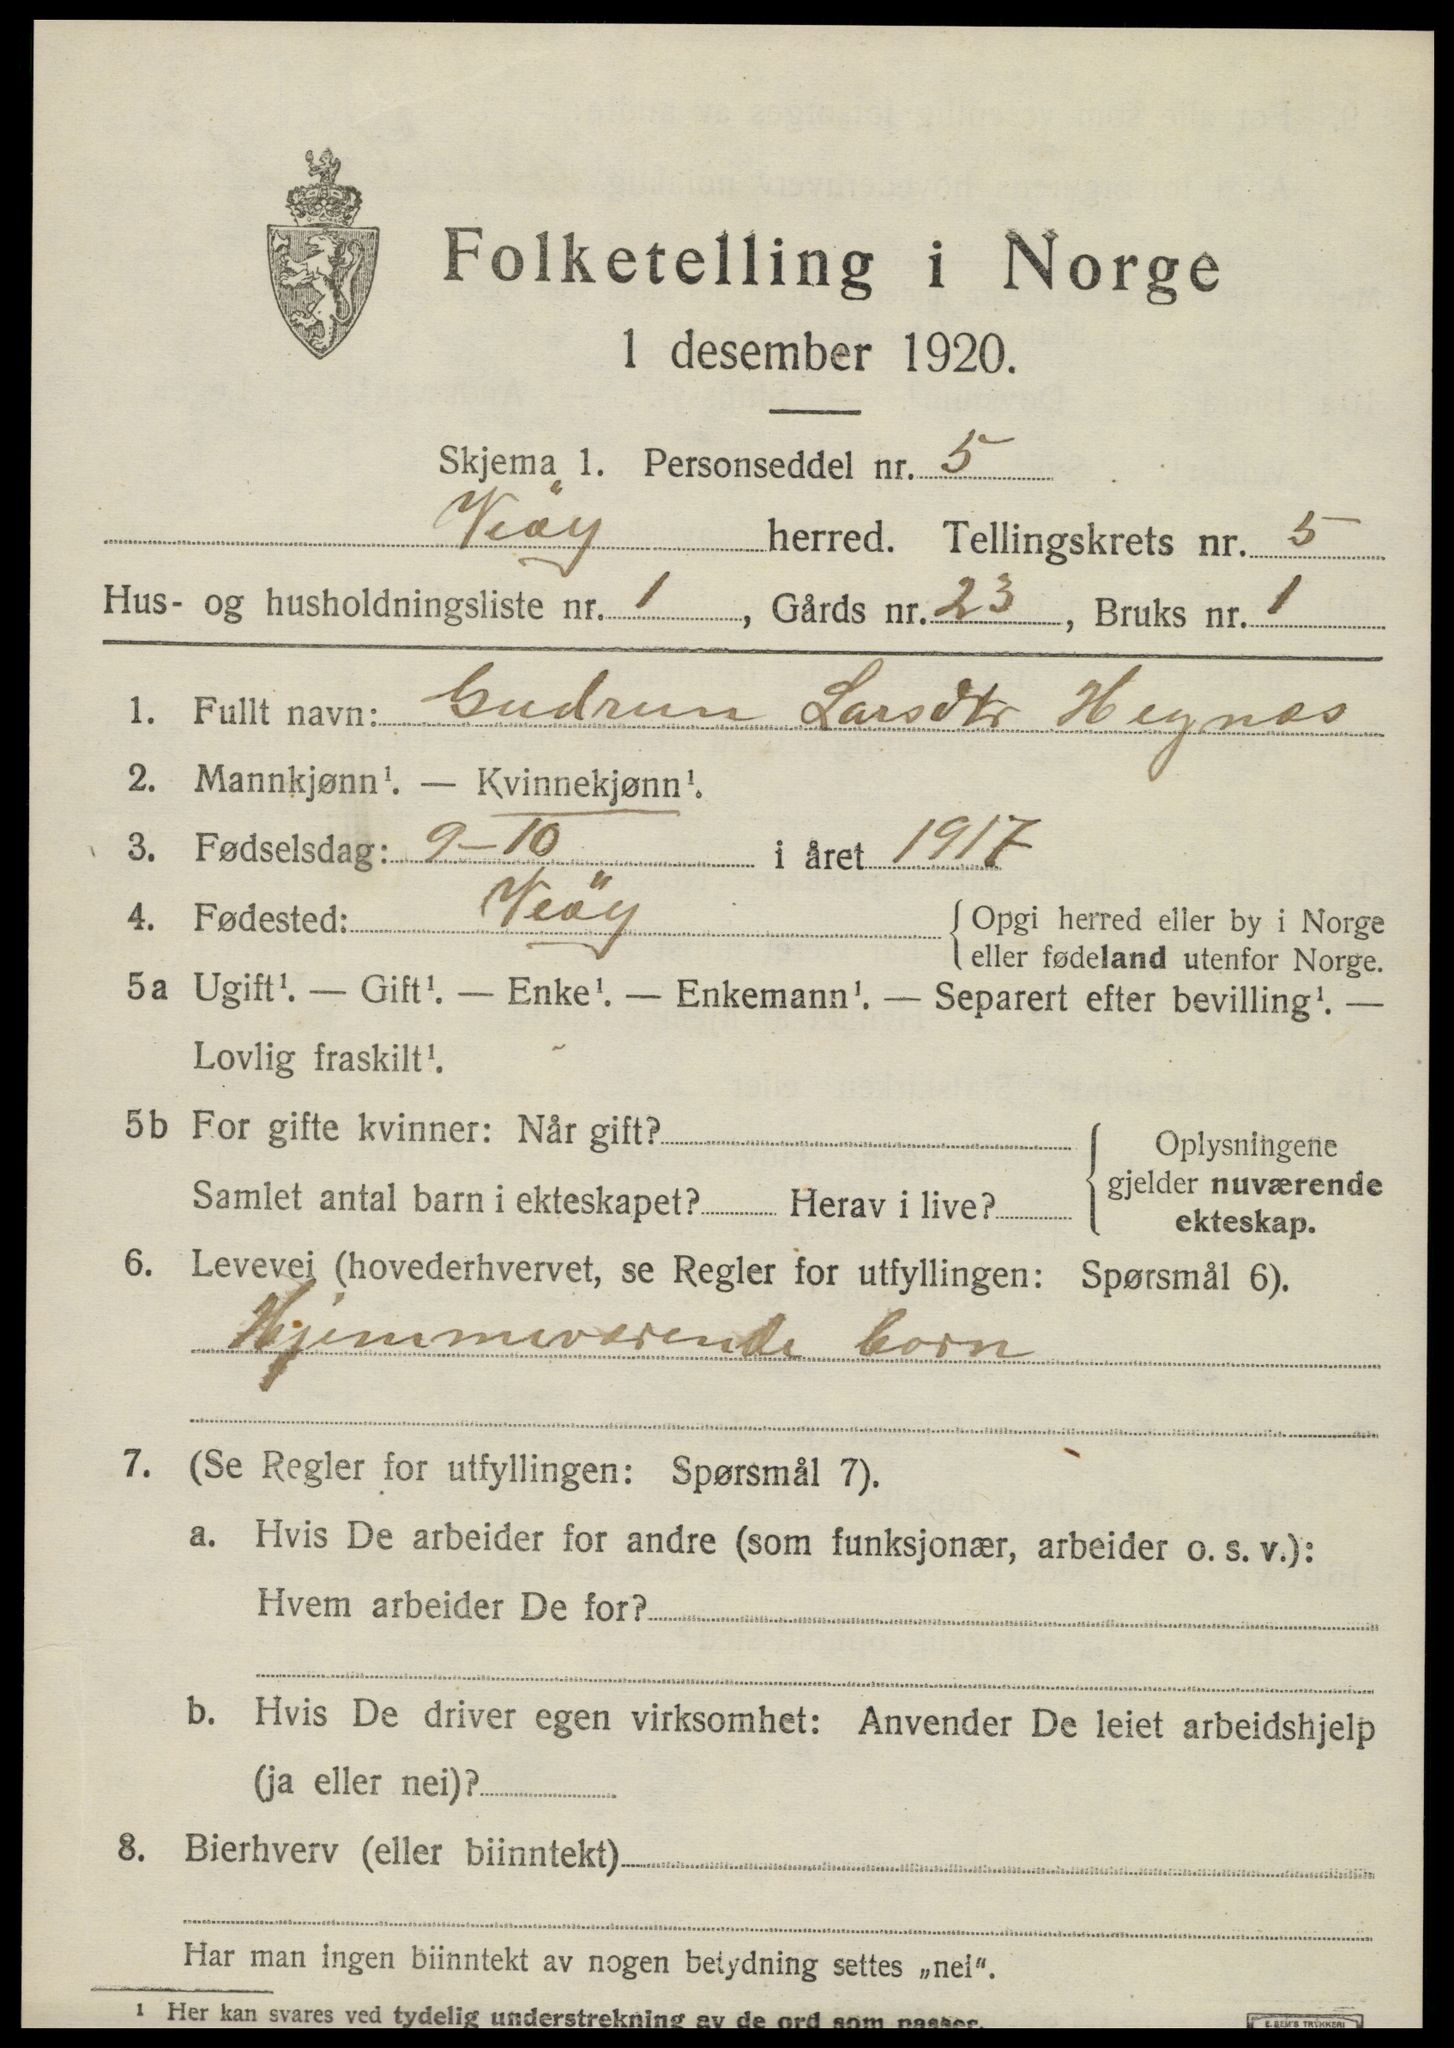 Folketelling i Norge
1 desember 1920.
Skjema 1. Personseddel nr. 5
Veöy herred. Tellingskrets nr. 5
Hus- og husholdningsliste nr. 1, Gårds nr. 23, Bruks nr. 1
1. Fullt navn: Gudrun Larsdtr Hegnæs
2. Mannkjønn¹. — Kvinnekjønn¹.
3. Fødselsdag: 9-10 i året 1917
4. Fødested: Veöy { Opgi herred eller by i Norge
eller fødeland utenfor Norge.
5a Ugift¹. — Gift¹. — Enke¹. — Enkemann¹. — Separert efter bevilling¹. —
Lovlig fraskilt¹.
5b For gifte kvinner: Når gift?
Samlet antal barn i ekteskapet? Herav i live?
{ Oplysningene
gjelder nuværende
ekteskap.
6. Levevei (hovederhvervet, se Regler for utfyllingen: Spørsmål 6).
Hjemmeværende born
7. (Se Regler for utfyllingen: Spørsmål 7).
a. Hvis De arbeider for andre (som funksjonær, arbeider o. s. v.):
Hvem arbeider De for?
b. Hvis De driver egen virksomhet: Anvender De leiet arbeidshjelp
(ja eller nei)?
8. Bierhverv (eller biinntekt)
Har man ingen biinntekt av nogen betydning settes „nei“.
1 Her kan svares ved tydelig understrekning av de ord som passer.
E. SEM'S TRYKKERI